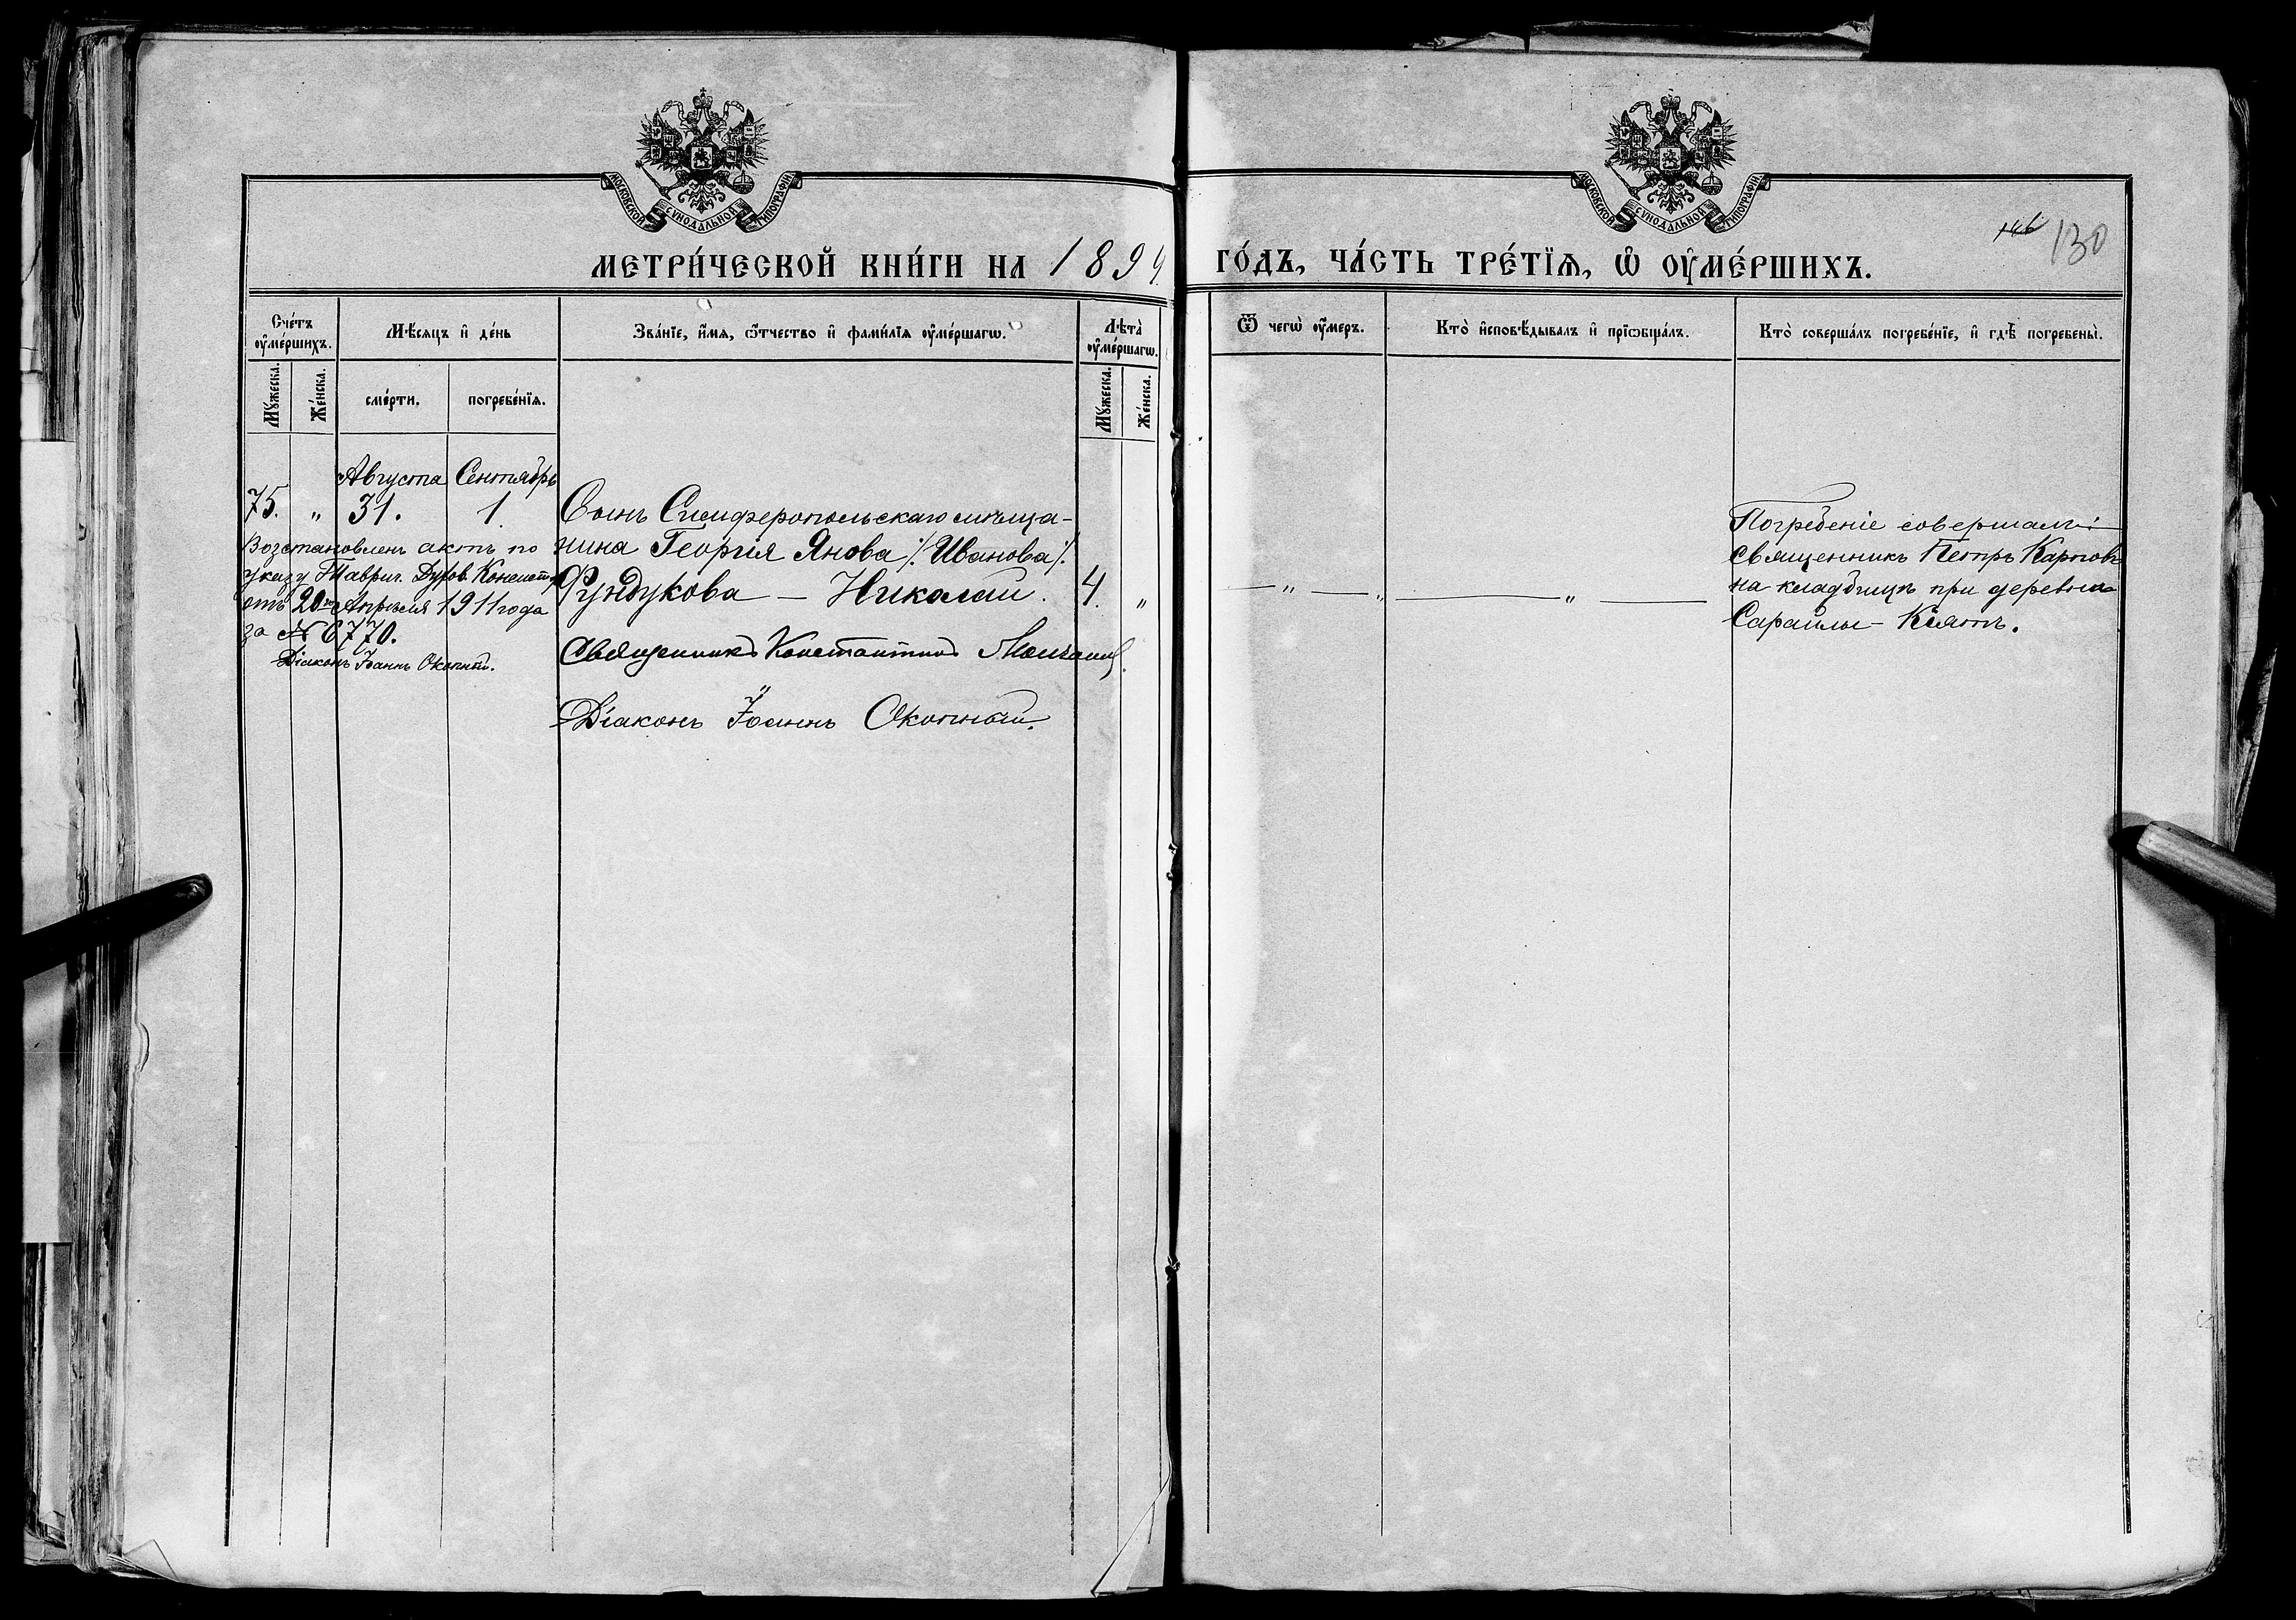 МОСКОВСКОЙ СѴНОДАЛЬНОЙ ТИПОГРАФІИ
МОСКОВСКОЙ СѴНОДАЛЬНОЙ ТИПОГРАФІИ
130
МЕТРИ́ЧЕСКОЙ КНИ́ГИ НА 1899 ГО́ДЪ, ЧА́СТЬ ТРЕ́ТЇѦ, Ѡ҆ ОУ҆МЕ́РШИХЪ.
Сче́тъ оу҆ме́ршихъ.
Мѣ́сѧцъ и҆ де́нь
Зва́нїе, и҆́мѧ, ѻ҆́тчество и҆ фами́лїѧ оу҆ме́ршагѡ.
Лѣта̀ оу҆ме́ршагѡ.
Ѿ чегѡ̀ оу҆́меръ.
Кто̀ и҆сповѣ́дывалъ и҆ прїѡбща́лъ.
Кто̀ соверша́лъ погребе́нїе, и҆ гдѣ̀ погребены̀.
Мꙋ́жеска.
Же́нска.
сме́рти.
погребе́нїѧ.
Мꙋ́жеска.
Же́нска.
Августа Сентябрь
75. " 31. 1. Сынъ Симферопольскаго мѣща-
нина Георгія Янова /. Иванова /.
Фундукова — Николай. 4. "
Возстановленъ актъ по
указу Таврич. Духов. Консист.
отъ 20го Апрѣля 1911 года
за № 6770.
Діаконъ Іоаннъ Окопный.
Священникъ Константинъ
Діаконъ Іоаннъ Окопный.
— " — " — " —
Погребеніе совершалъ:
священникъ Петръ Карповъ
на кладбищѣ при деревнѣ
Сарайлы-Кіятъ.